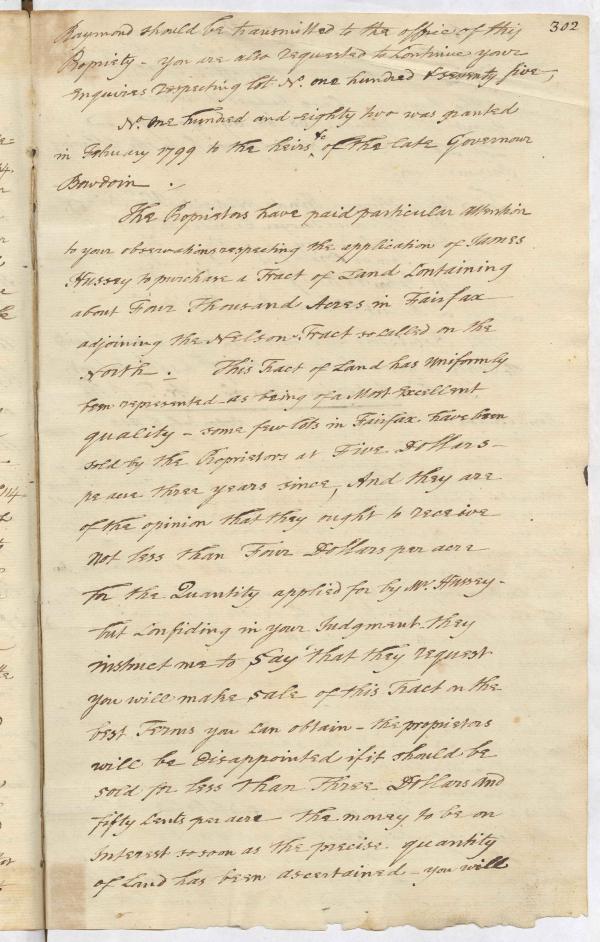 302
Raymond should be transmitted to the office of this
Propriety - you are also requested to Continue your
enquires respecting lot No. one hundred & seventy five,
No. One hundred and eighty two was granted
in February 1799 to the heirs &c of the late Governour
Bowdoin .
The Proprietors have paid particular attention
to your observations respecting the application of James
Hussey to purchase a Tract of Land Containing
about Four Thousand Acres in Fairfax
adjoining the Nelson Tract so Called on the
North . This Tract of Land has Uniformly
been represented as being of a Most Excellent
quality - some few lots in Fairfax have been
sold by the Proprietors at Five Dollars -
pe acre three years since, And they are
of the opinion that they ought to receive
not less than Four Dollars per acre
for the Quantity applied for by Mr. Hussey -
but Confiding in your Judgment they
instruct me to Say that they request
you will make Sale of this Tract on the
best Terms you Can obtain - the proprietors
will be disappointed if it should be
sold for less than Three Dollars and
fifty Cents per acre the money to be on
Interest so soon as the precise quantity
of Land has been ascertained - you will